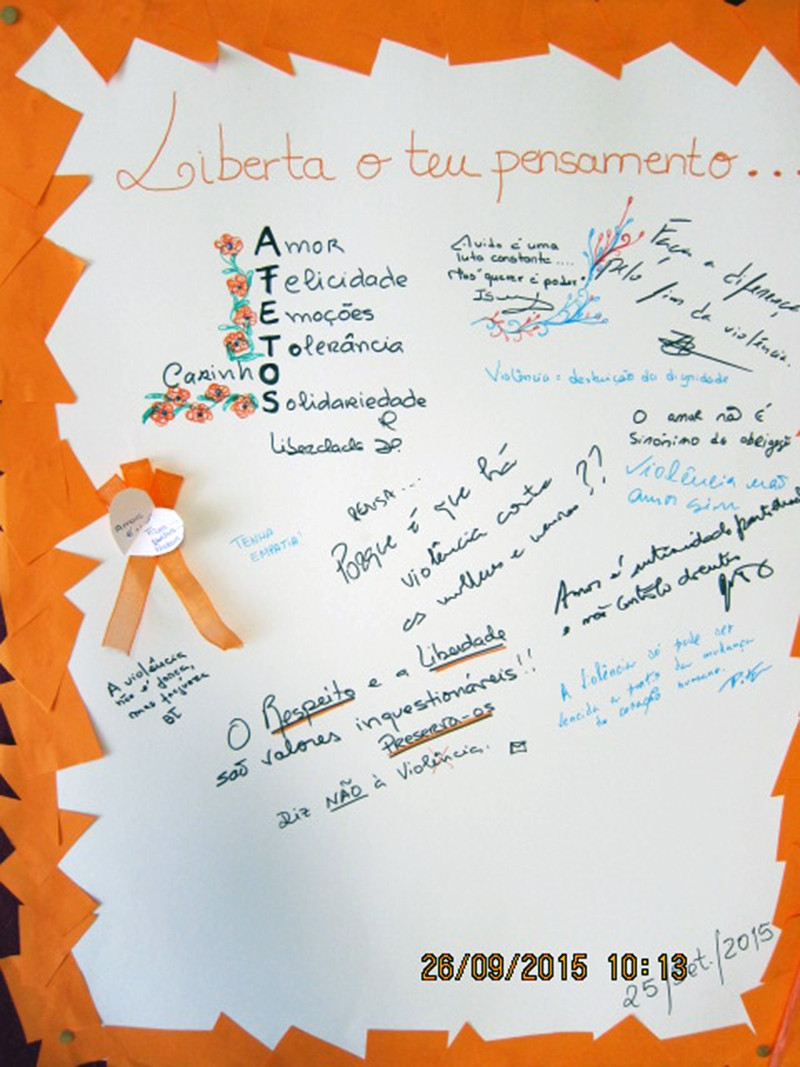 Liberta o teu pensamento...
Amor
Felicidade
Emoções
Tolerância
CarinhO
Solidariedade
Liberdade
A vida é uma
luta constante....
Mas querer é poder.
Faça a diferença
pelo fim da violência.
Violência = destruição da dignidade
O amor não é
sinónimo de obrigação
Violência não
amor sim
PENSA...
Porque é que há
violência contra
as mulheres e menores??
TENHA
EMPATIA
Amor é intimidade partilhada
e não controlo doentio
A violência
não é força,
mas fraqueza
BI
O Respeito e a Liberdade
são valores inquestionáveis!!
Preserva-os
Diz NÃO à Violência.
A Violência só pode ser
vencida a partir da mudança
do coração humano.
26/09/2015 10:13
25/Set./2015